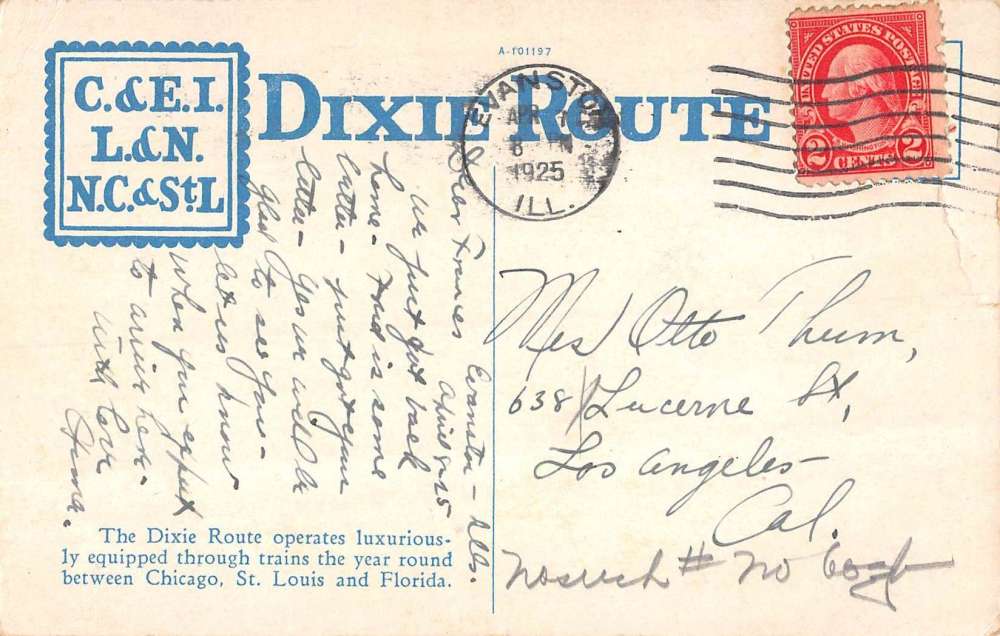 A-101197
C.&E.I.
L.&N.
N.C.&St.L
DIXIE ROUTE
EVANSTON
APR
8
1925
ILL.
UNITED STATES POSTAGE
WASHINGTON
2 CENTS 2
Dear Frances Evanston - Ills.
April 8-25
We just got back
home - Fred is some
better - just got your
letter - Yes we will be
glad to see you -
let us know
when you expect
to arrive here.
With love
Mrs Otto Thum,
638 Lucerne St,
Los Angeles -
Cal.
No such # no
The Dixie Route operates luxurious-
ly equipped through trains the year round
between Chicago, St. Louis and Florida.